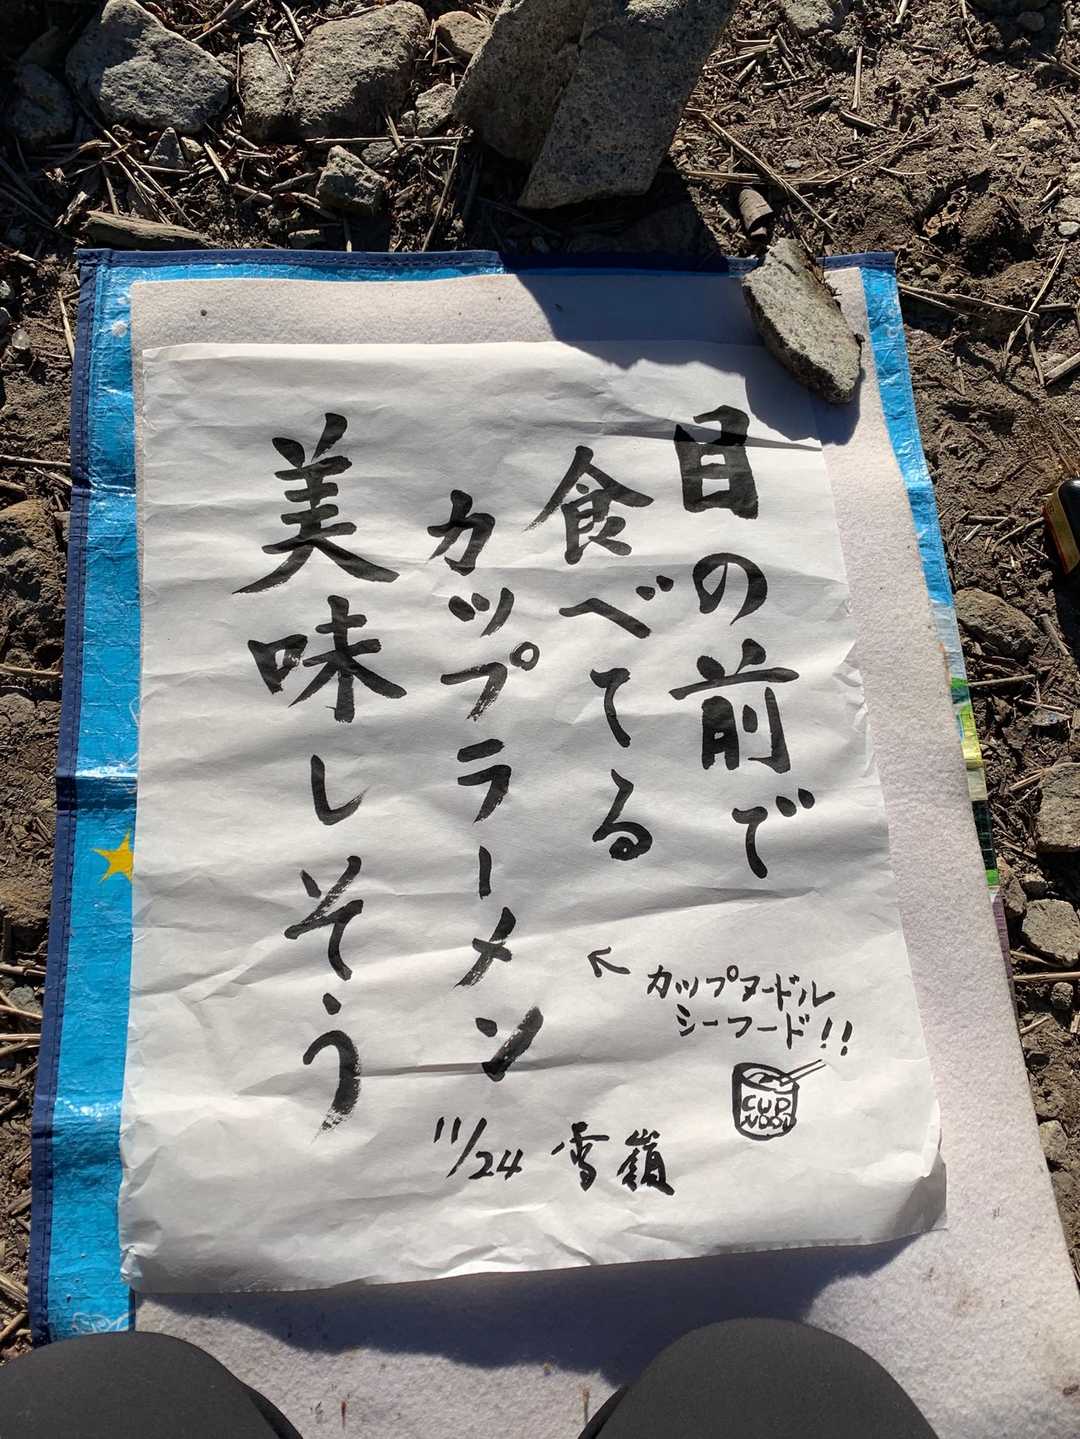 目の前で
食べてる
カップラーメン
美味しそう
カップヌードル
シーフード!!
CUP
NOODL
11/24 雪嶺